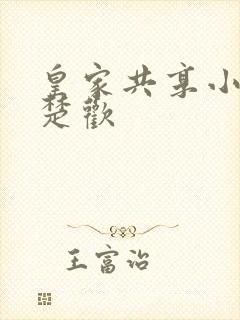 皇家共享小
楚歡
王富治